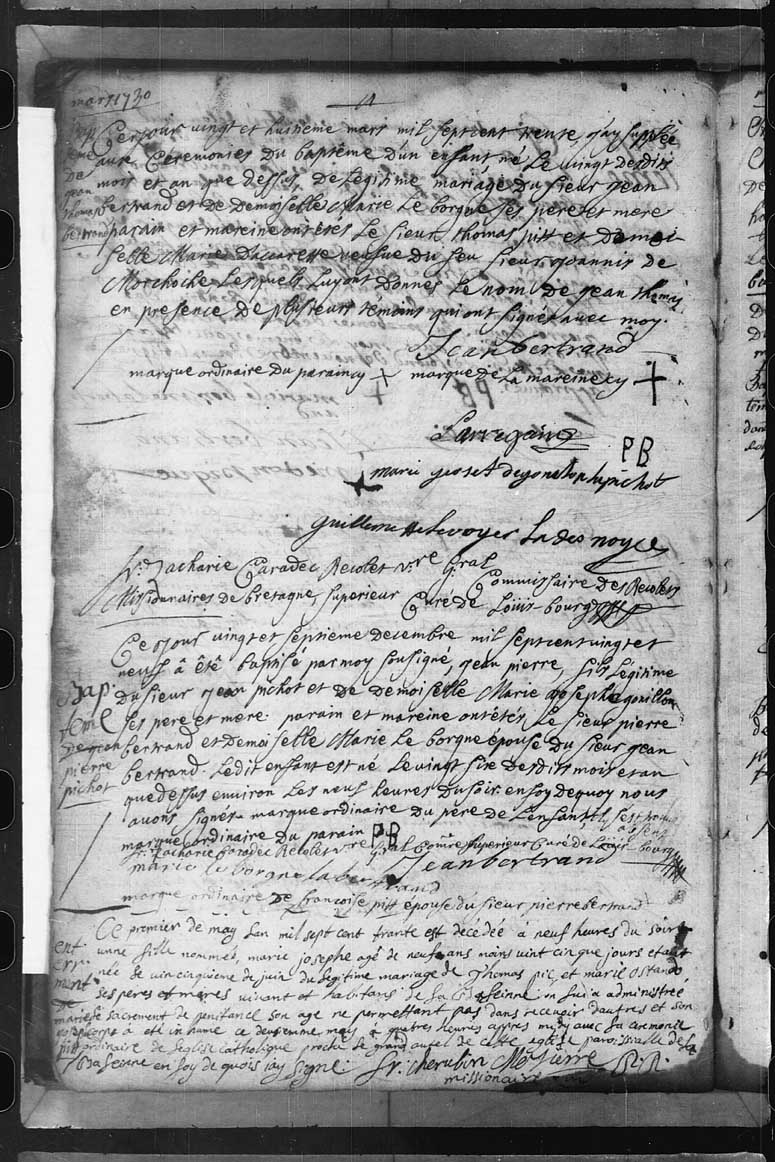 mars 1730
14
Ce jour vingt et huitieme mars mil septcent trente, j'ay supplée
aux Ceremonies du baptême d'un enfant né le vingt desdits
mois et an que dessus, de Légitime mariage du sieur jean
bertrand et de Demoiselle Marie le borgne ses pere et mere
parain et mareine ont étés le sieur thomas pitt et Demoi
selle Marie Daccarette veufve du feu sieur joannis de
Morchoche Lesquels Luy ont donnés le nom de jean thomas
en presence de plusieurs témoins qui ont signés avec moy.
bap
eme
De
jean
thomas
bertrand
Jean bertrand
marque ordinaire du parain cy + marque de la mareine cy +
Larregain
PB
marie joset degonelhon lapichot
guillemette levoyer La des noyes
fr. Zacharie Caradec Recolet v.re g.ral Commissaire des Recolets
Missionaires de bretagne, superieur Curé de Louis-bourg
Ce jour vingt et septieme decembre mil septcent vingt et
neuf à été baptisé par moy soussigné, jean pierre, fils Légitime
du sieur jean pichot et de demoiselle Marie josephe gonillon
ses pere et mere. parain et mareine ont étés le sieur pierre
bertrand et Demoiselle Marie le borgne épouse du sieur jean
bertrand. Ledit enfant est né le vingt six desdits mois et an
que dessus environ les neuf heures du soir. en foy de quoy nous
avons signés. marque ordinaire du pere de L'enfant
marque ordinaire du parain PB
Bap.
teme
De jean
pierre
pichot
fr. Zacharie Caradec Recolet v.re g.ral Com.re superieur Curé de Louis-bourg
Jean bertrand
marie le borgne la bertrand
marque ordinaire de francoise pitt epouse du sieur pierre bertrand
Ce premier de may Lan mil sept cent trante est décédée a neuf heures du soir
unne fille nommée, marie josephe agé de neuf ans moins vint cinque jours etant
née le vin cinquieme de juin du legitime mariage de Thomas pic, et marie ostando
ses peres et meres vivant et habitans de la Baseinne on lui a administreé
le sacrement de penitance son age ne permettant pas dans recevoir dautres et son
corps a eté in hume ce deuxieme may a quatres heures appres midy avec la ceremonie
ordinaire de leglise Catholique proche le grand autel de cette eglise paroissialle de la
Baseinne en foy de quois jay signé. fr. Cherubin
missionaire
ent
err.
ment
marie
pitt